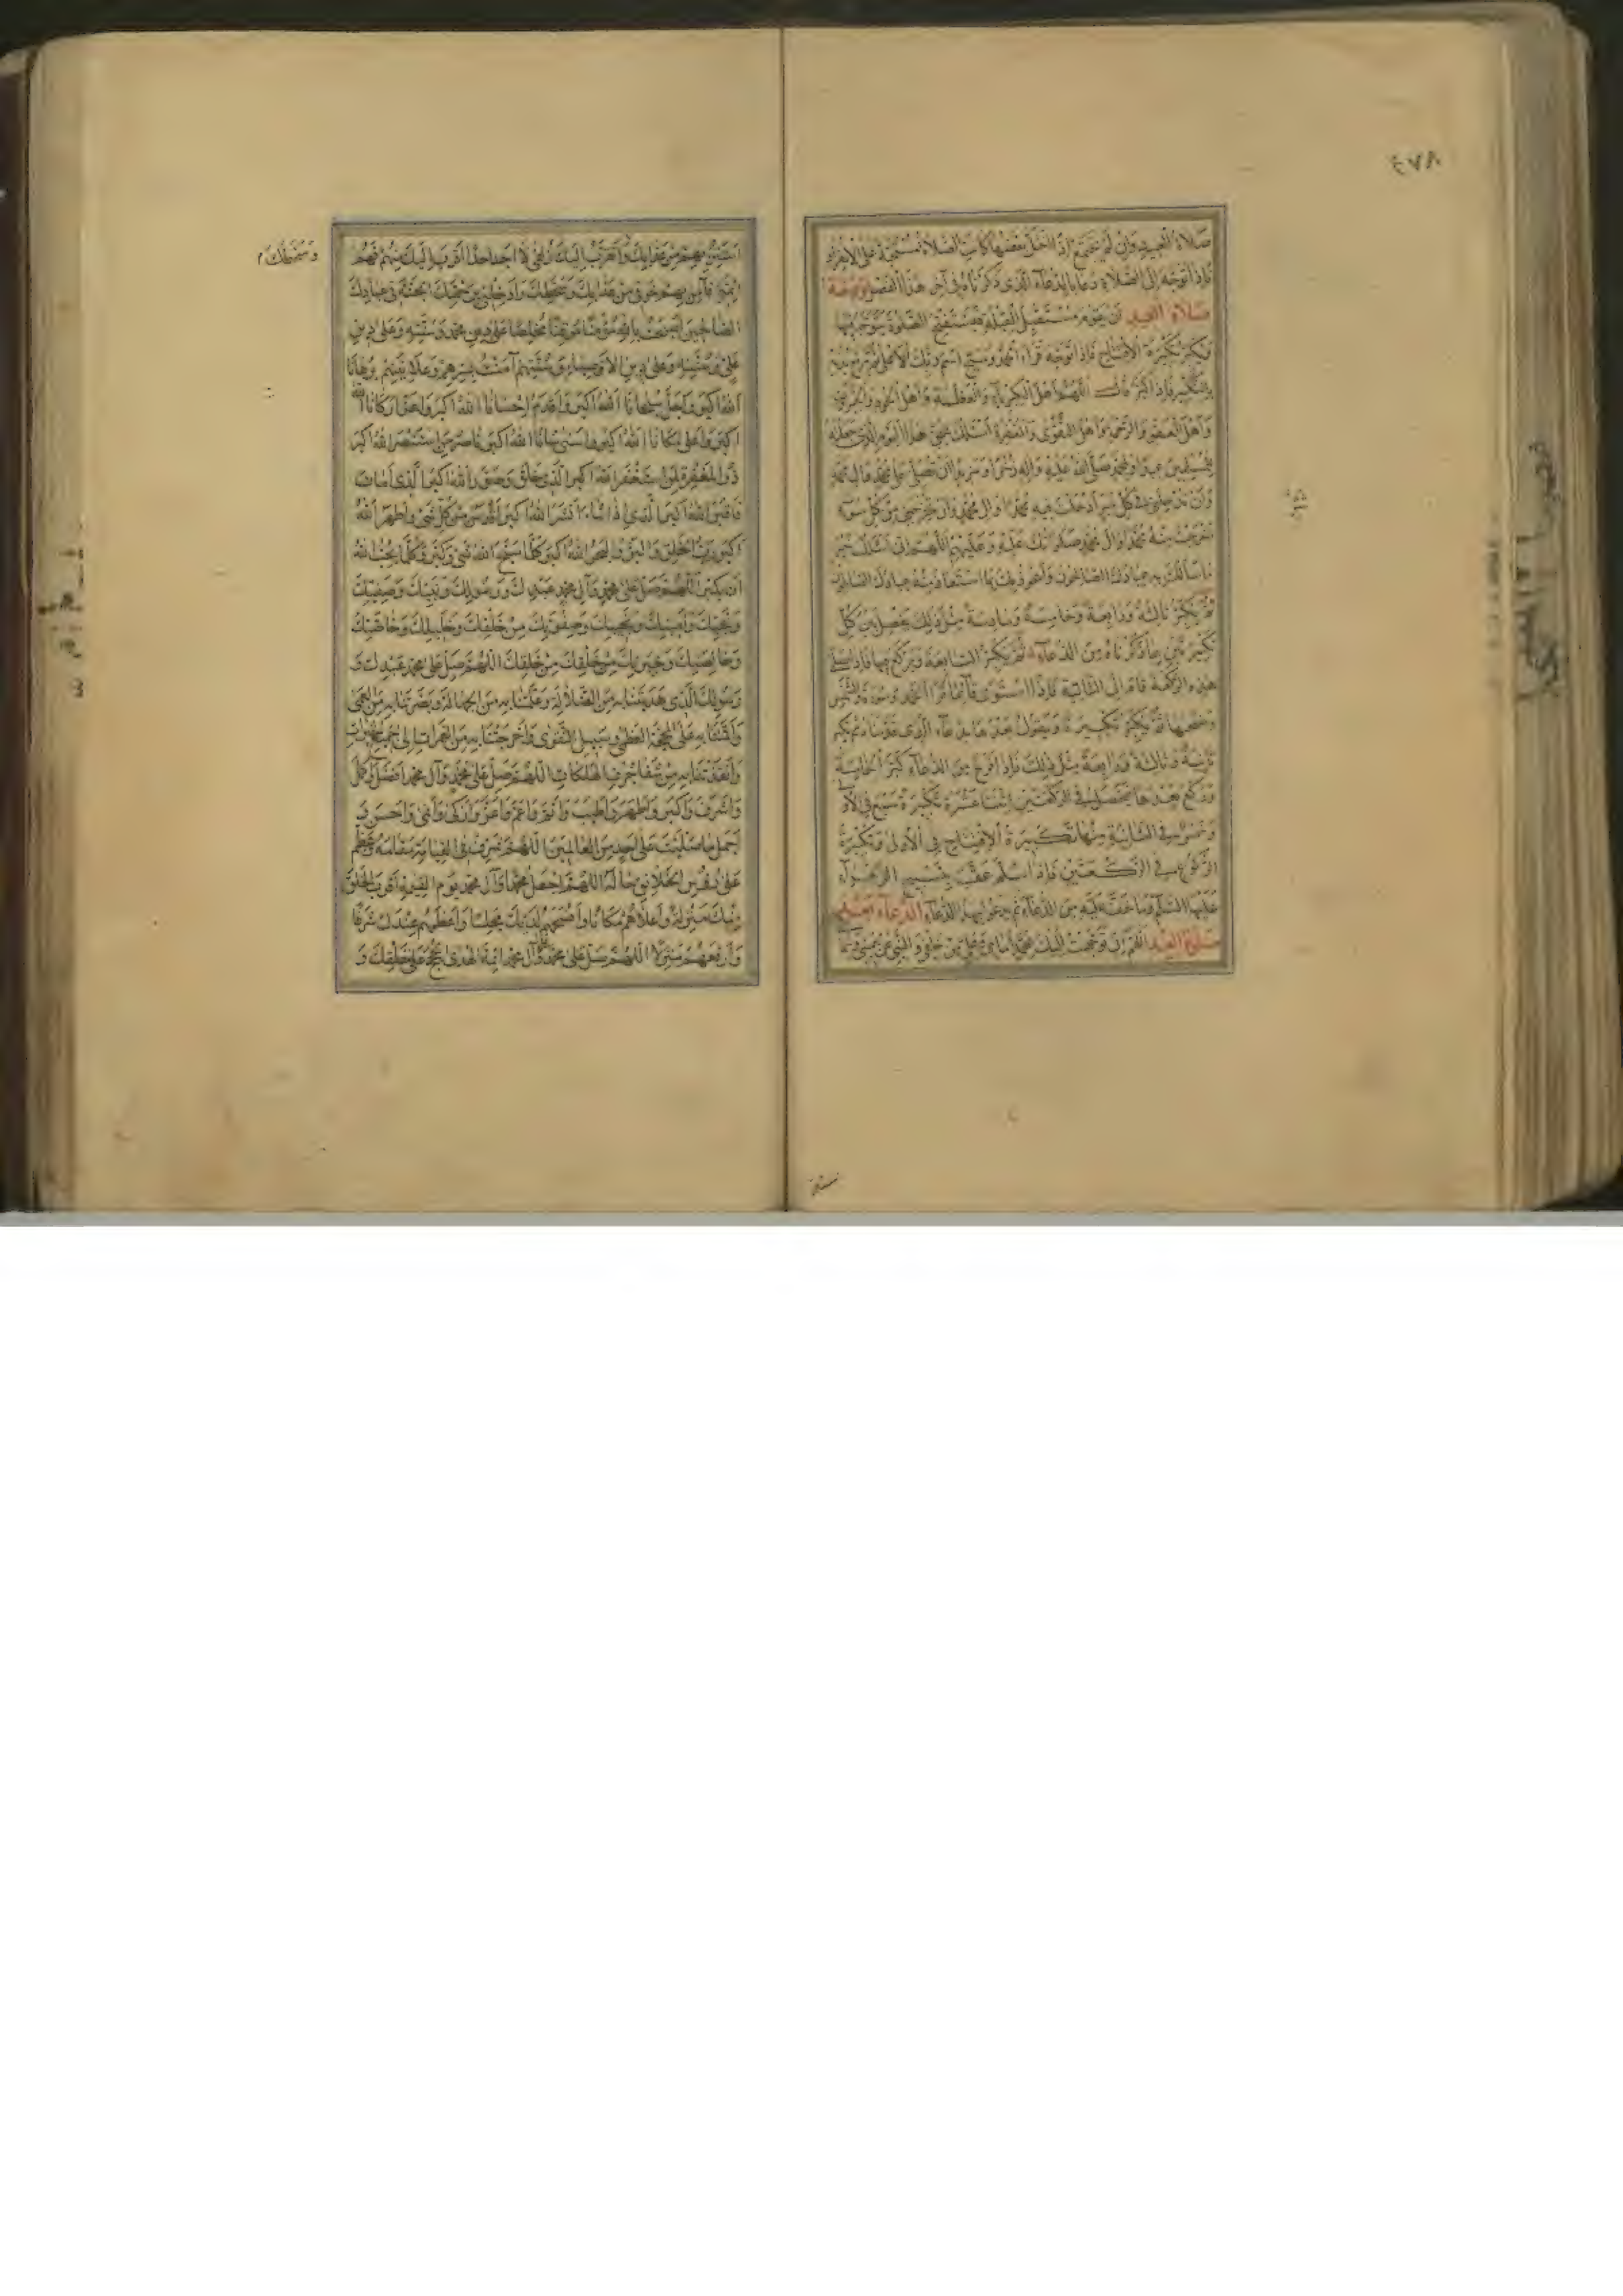 ٤٧٨
صلاة العيد وان لم تجتمع او اختل بعضها كانت الصلاة مستحبة على الانفراد
فاذا توجه الى الصلاة دعا بالدعاء الذى ذكرناه فى آخر هذا الفصل وصفة
صلاة العيد ان يقوم مستقبل القبلة فيستفتح الصلوة يتوجه بها
ويكبر تكبيرة الافتتاح فاذا توجه قراء الحمد وسبح اسم ربك الاعلى ثم يرفع يديه
بالتكبير فاذا كبر قال اللهم اهل الكبرياء والعظمة واهل الجود والجبروت
واهل العفو والرحمة واهل التقوى والمغفرة اسئلك بحق هذا اليوم الذى جعلته
للمسلمين عيدا ولمحمد صلى الله عليه وآله ذخرا ومزيدا ان تصلى على محمد وآل محمد
وان تدخلنى فى كل خير ادخلت فيه محمدا وآل محمد وان تخرجنى من كل سوء
اخرجت منه محمدا وآل محمد صلواتك عليه وعليهم اللهم انى اسئلك خير
ما سألك به عبادك الصالحون واعوذ بك مما استعاذ منه عبادك الصالحون
ثم يكبر ثالثة ورابعة وخامسة وسادسة مثل ذلك يفصل بين كل
تكبيرتين بما ذكرناه من الدعاء ثم يكبر السابعة ويركع بها فاذا صلى
هذه الركعة قام الى الثانية فاذا استوى قائما قرأ الحمد وسورة والشمس
وضحيها ثم يكبر تكبيرة ويقول بعدها الدعاء الذى قدمناه ثم يكبر
ثانية وثالثة ورابعة مثل ذلك فاذا فرغ من الدعاء كبر الخامسة
وركع بعدها فيحصل فى الركعتين اثنتا عشرة تكبيرة سبع فى الاولى
وخمس فى الثانية منها تكبيرة الافتتاح فى الاولى وتكبيرة
الركوع فى الركعتين فاذا سلم عقب بتسبيح الزهراء
عليها السلم وما خف عليه من الدعاء ثم يدعو بهذا الدعاء الدعاء بعد
صلوة العيد اللهم انى توجهت اليك بمحمد امامى وعلى من خلفى وائمتى عن يمينى وشمالى
استتر بهم من عذابك واتقرب اليك زلفى لا اجد احدا اقرب اليك منهم فهم
ائمتى فآمن بهم خوفى من عذابك وسخطك وادخلنى برحمتك الجنة فى عبادك
الصالحين اصبحت بالله مؤمنا موقنا مخلصا على دين محمد وسنته وعلى دين
على وسنته وعلى دين الاوصياء وسنتهم آمنت بسرهم وعلانيتهم
الله اكبر واجل سلطانا الله اكبر واقدم احسانا الله اكبر واعز اركانا الله
اكبر واعلى مكانا الله اكبر واسنى شانا الله اكبر ناصر من استنصر الله اكبر
ذو المغفرة لمن استغفر الله اكبر الذى خلق وصور الله اكبر الذى امات
فاقبر الله اكبر الذى اذا شاء انشر الله اكبر اقدس من كل شئ واظهر الله
اكبر رب الخلق والبر والبحر الله اكبر كلما سبح الله شئ وكبر وكما يحب الله
ان يكبر اللهم صل على محمد وآل محمد عبدك ورسولك ونبيك وصفيك
ونجيك وامينك ونجيبك وصفوتك من خلقك وخليلك وخاصتك
وخالصتك وخيرتك من خلقك اللهم صل على محمد عبدك و
رسولك الذى هديتنا به من الضلالة وعلمتنا به من الجهالة وبصرتنا به من العمى
واقمتنا به على المحجة العظمى وسبيل التقوى واخرجتنا به من الغمرات الى جميع الخيرات
وانقذتنا به من شفا جرف الهلكات اللهم صل على محمد وآل محمد افضل واكمل
واشرف واكبر واطهر واطيب واتم واعم واعز وازكى وانمى واحسن و
اجمل ما صليت على احد من العالمين اللهم شرف فى القيامة مقامه وعظم
على رؤس الخلائق حاله اللهم اجعل محمدا وآل محمد يوم القيمة اقرب الخلق
منك منزلة واعلاهم مكانا وافسحهم لديك مجلسا واعظمهم عندك شرفا
وارفعهم منزلا اللهم صل على محمد وآل محمد ائمة الهدى والحجج على خلقك و
وسخطك